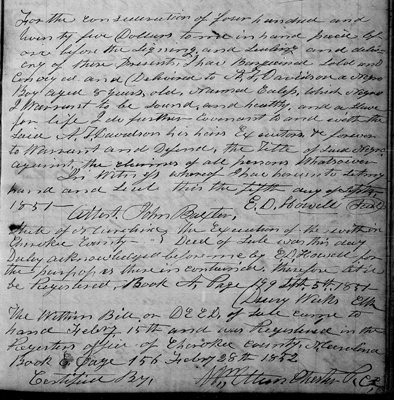 For the consideration of four hundred and
twenty five Dollars to me in hand paid by
one before the signing and sealing and deliv
ery of these presents, I have Bargained Sold and
Conveyed and Delivered to A. T. Davidson a Negro
Boy aged 8 years, old, named Caleb, which Negro
I Warrant to be sound, and healthy, and a slave
for life I do further Covenant to and with the
said A. T Davidson his heirs Executors & forever
to Warrant and Defend, the Title of said Negro
against the claims of all persons Whatsoever
In Witness whereof I have hereunto set my
hand and Seal this the fifth day of Sept.
1851 - E. D. Howell Seal
Attest, John Baxter,
State of N Carolina, The Execution of the within
Cherokee County Deed of Sale was this day
Duly acknowledged before me by E D Howell for
the purposes therein contained, Therefore let it
be Registered, Book A Page 199 Sept 5th 1851
Drury Weeks Clk
The Within Bill or DEED, of Sale came to
hand Feby 15th and was Registered in the
Registers office of Cherokee County, N Carolina
Book E Page 156 Feby 28th 1852
Certified By,